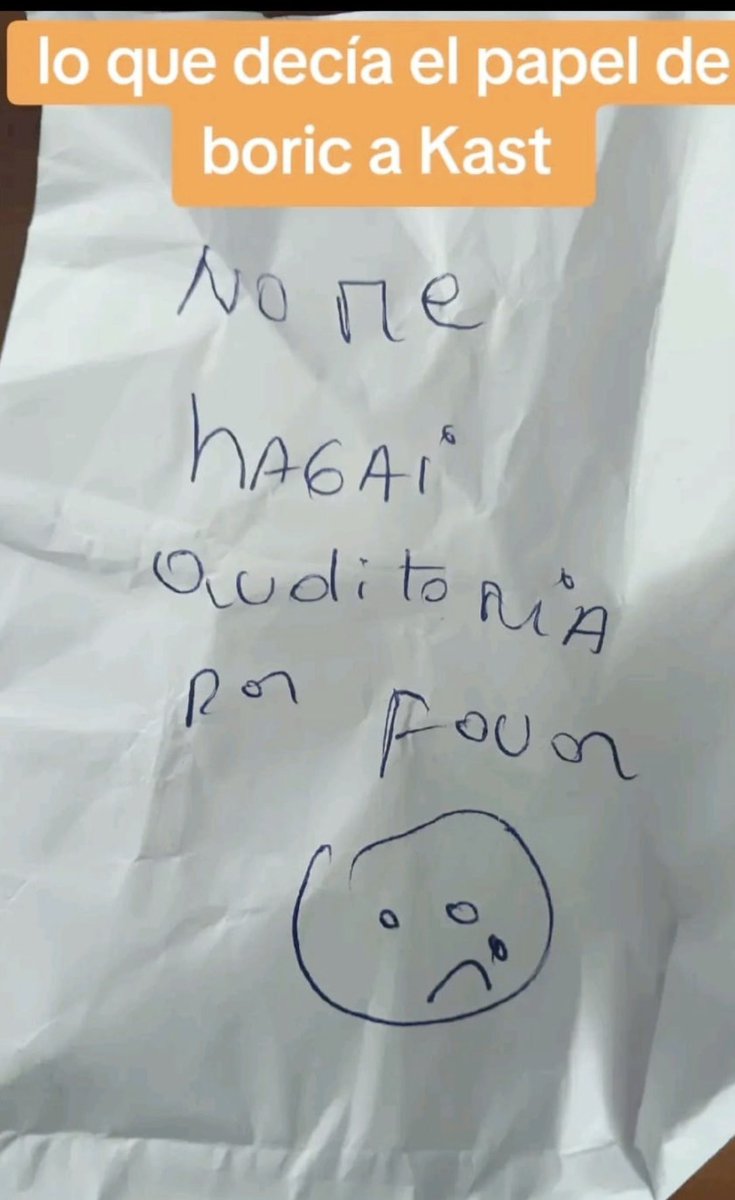 lo que decía el papel de
boric a Kast
No me
hAGAi
auditoriA
por
Favor